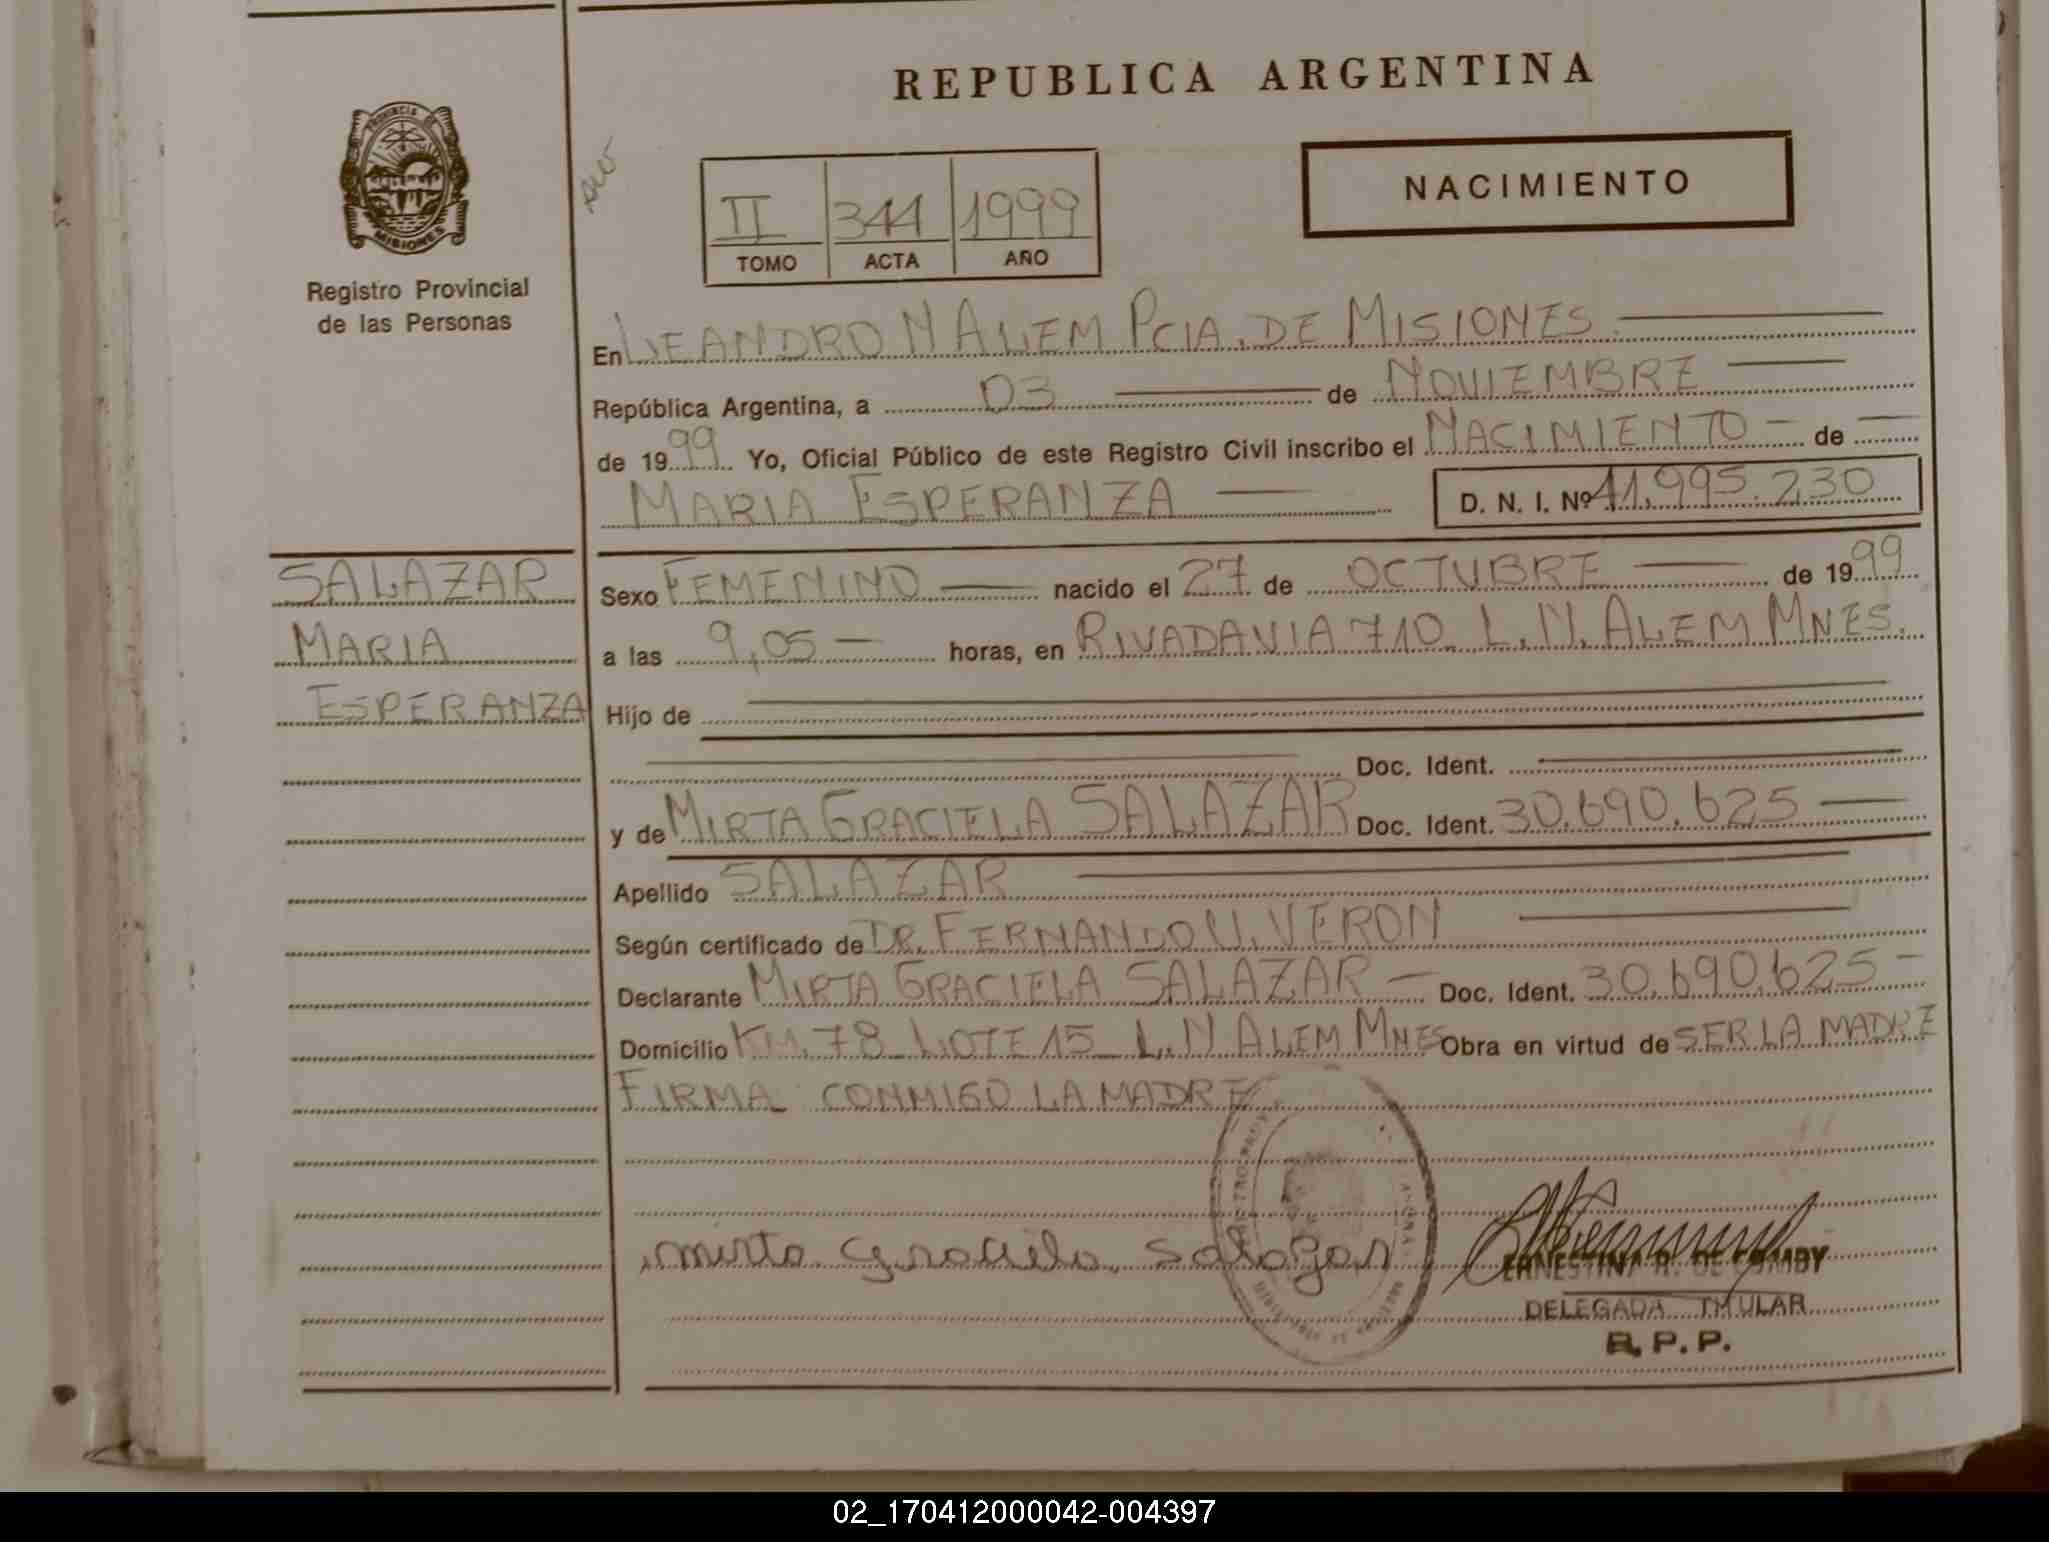 REPUBLICA ARGENTINA
PROVINCIA DE
MISIONES
Registro Provincial
de las Personas
NACIMIENTO
II 344 1999
TOMO ACTA AÑO
En LEANDRO N ALEM PCIA. DE MISIONES
República Argentina, a 03 de NOVIEMBRE
de 1999 Yo, Oficial Público de este Registro Civil inscribo el NACIMIENTO de
MARIA ESPERANZA D. N. I. Nº 41.995.230
SALAZAR
MARIA
ESPERANZA
Sexo FEMENINO nacido el 27 de OCTUBRE de 1999
a las 9,05 horas, en RIVADAVIA 710 L.N. ALEM MNES.
Hijo de
Doc. Ident.
y de MIRTA GRACIELA SALAZAR Doc. Ident. 30.690.625
Apellido SALAZAR
Según certificado de DR. FERNANDO U. VERON
Declarante MIRTA GRACIELA SALAZAR Doc. Ident. 30.690.625
Domicilio KM. 78 LOTE 15 L.N ALEM MNES Obra en virtud de SER LA MADRE
FIRMA CONMIGO LA MADRE
mirta graciela salazar
ERNESTINA R. DE
DELEGADA TITULAR
R.P.P.
02_170412000042-004397